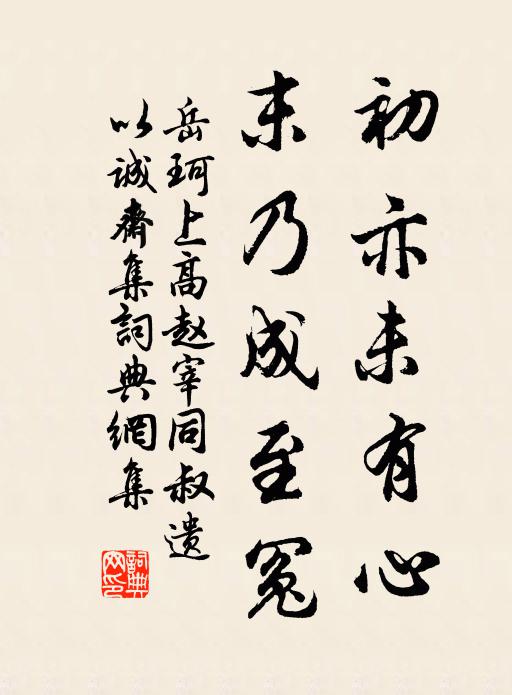 初亦未有心
末乃成至冤
岳珂上高赵宰同叔遗
以诚斋集詞典網集
詞典网印